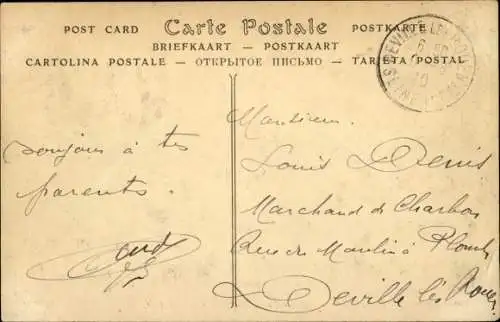 POST CARD Carte Postale POSTKARTE
BRIEFKAART — POSTKAART
CARTOLINA POSTALE — ОТКРЫТОЕ ПИСЬМО — TARJETA POSTAL
DEVILLE-LES-ROUEN
6
10
SEINE INFRE
Bonjour à tes
parents.
Monsieur
Louis Denis
Marchand de Charbon
Rue du Moulin à Plomb
Deville lès Rouen